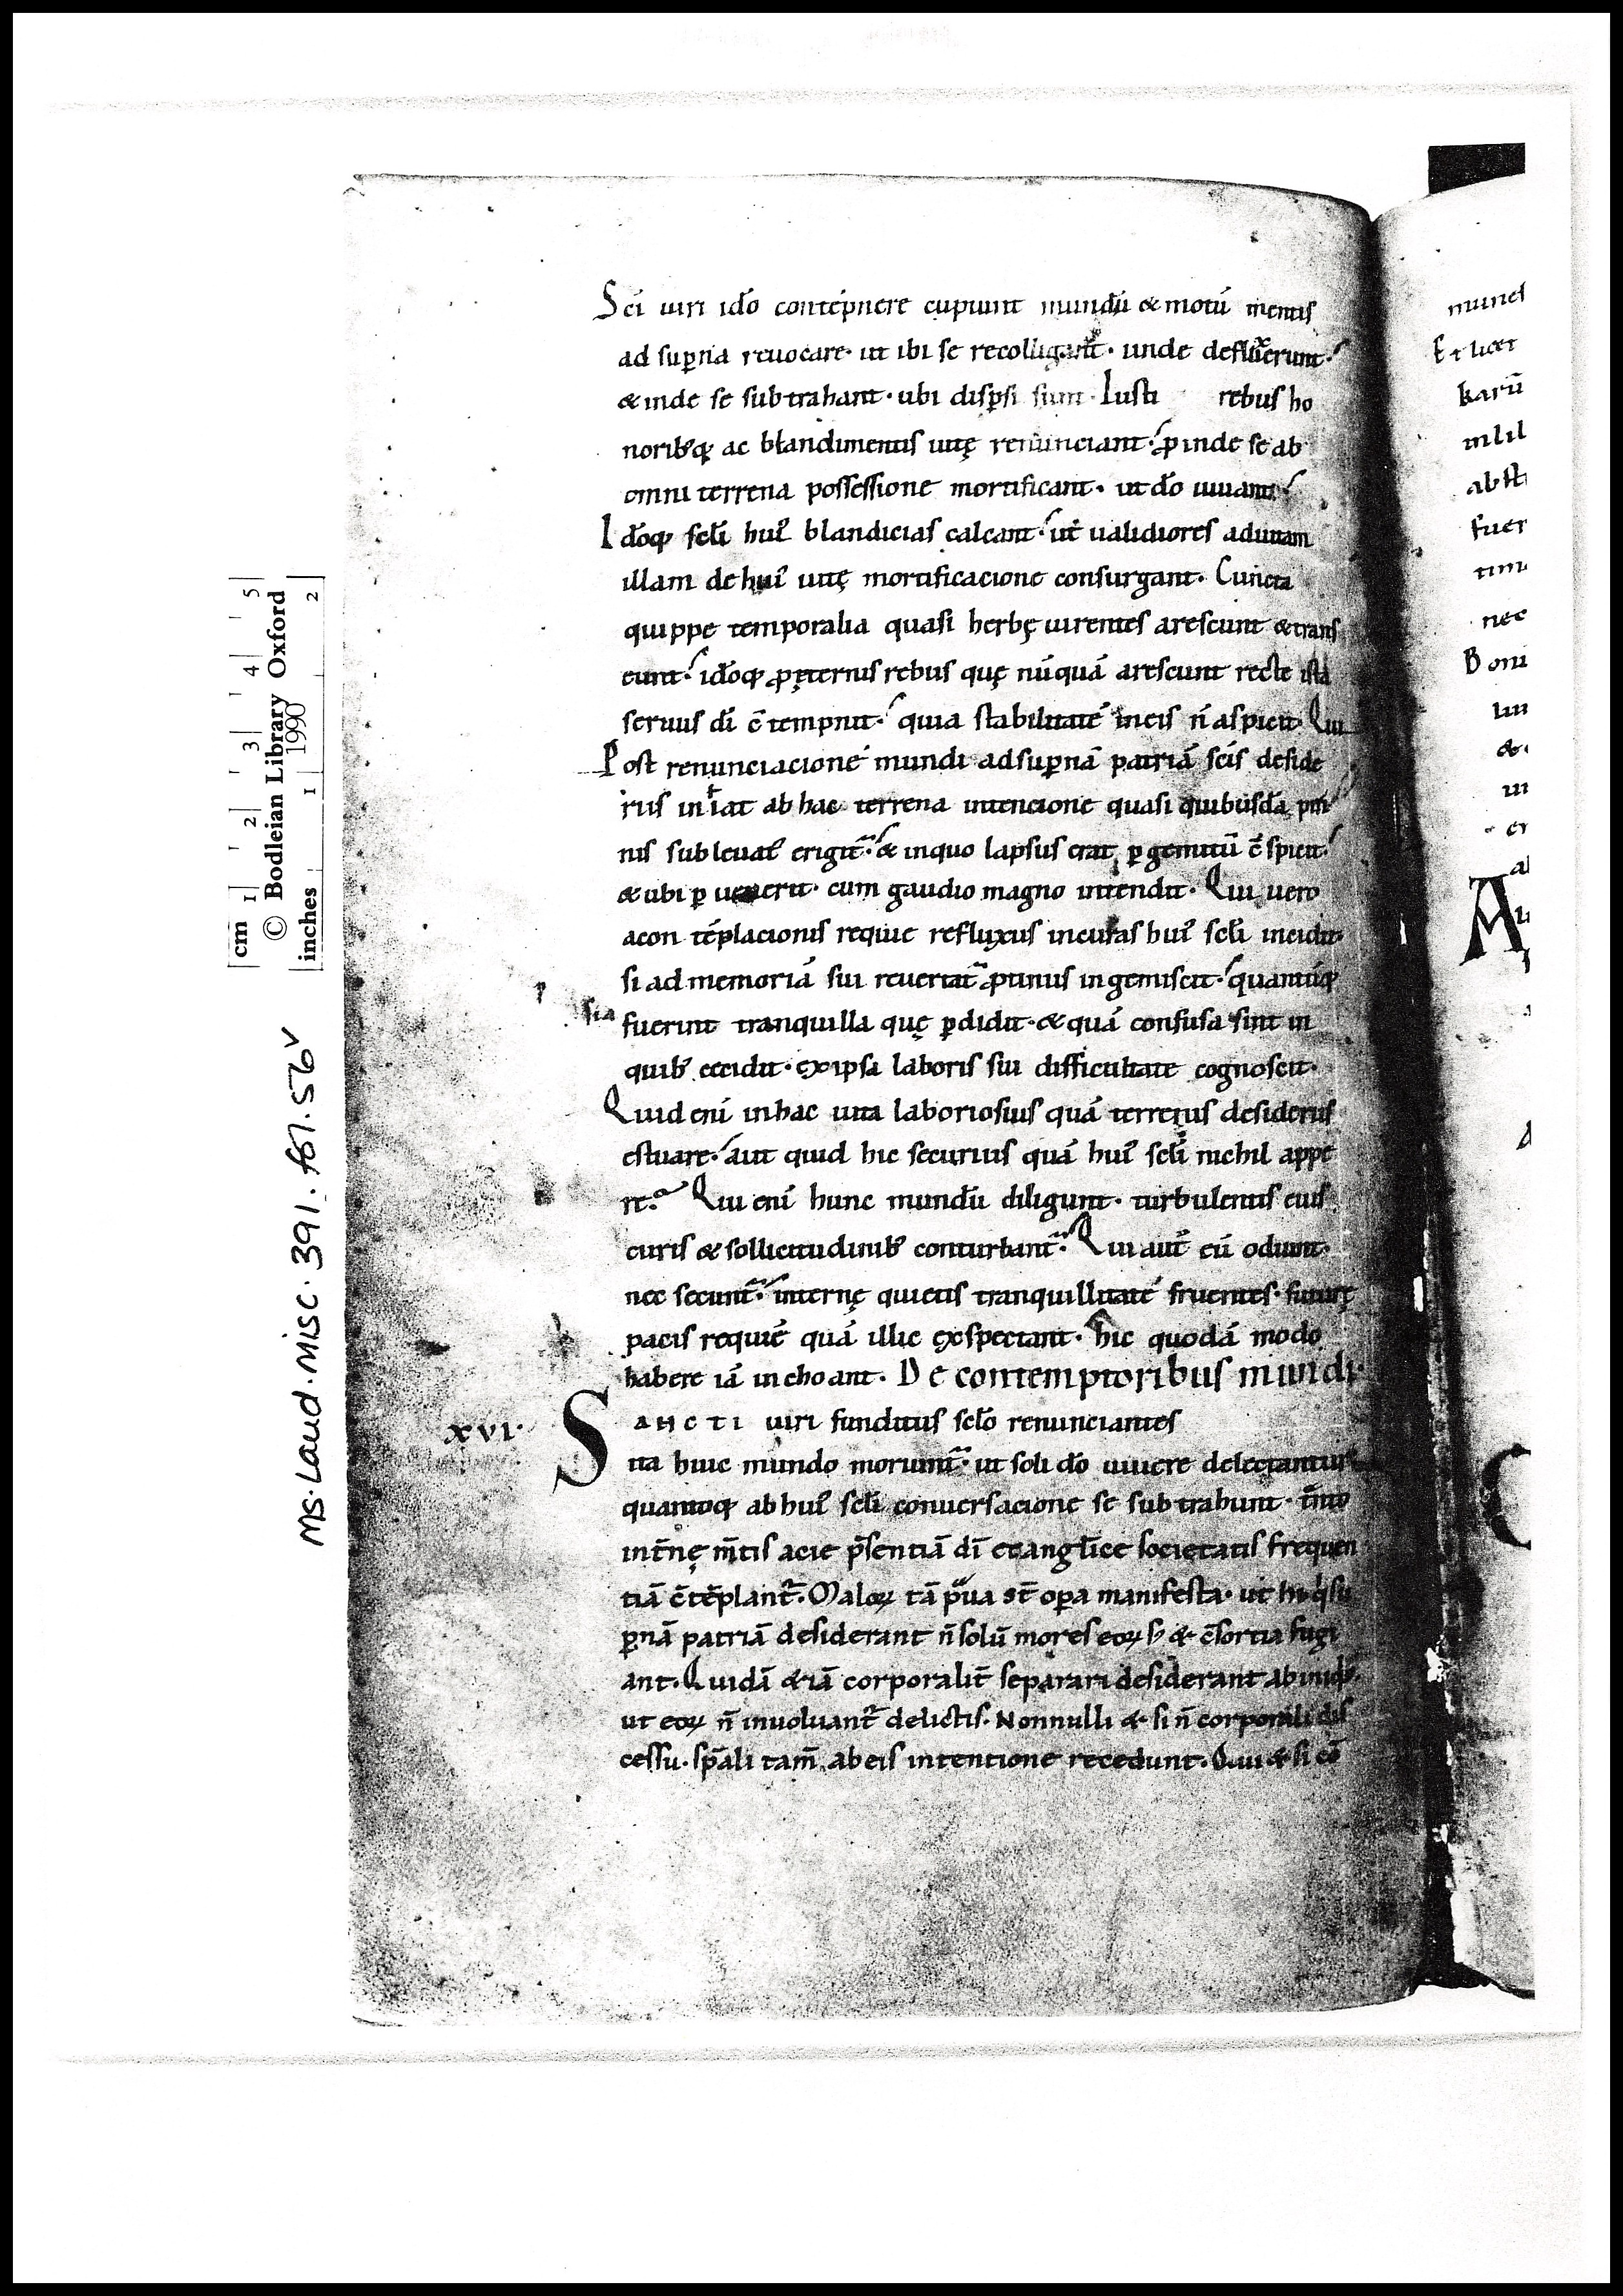 Sc̄i uiri id̄o contēpnere cupiunt mundū & motū mentis
ad sup̲na reuocare· ut ibi se recolligant· unde defluxerunt·
& inde se subtrahant· ubi disp̲si sunt· Iusti rebus ho
norib;q; ac blandimentis uitę renunciant· ꝓinde se ab
omni terrena possessione mortificant· ut dō uiuant·
Idōq; sc̄li hui᾽ blandicias calcant· ut ualidiores ad uitam
illam de hui᾽ uitę mortificacione consurgant· Cuncta
quippe temporalia quasi herbę uirentes arescunt & trans
eunt· idōq; ꝓ ęternis rebus quę nūquā arescunt recte ista
seruus dī c̄tempnit· quia stabilitatē in eis n̄ aspicit· Qui
Post renunciacionē mundi ad sup̲nā patriā sc̄is deside
riis inhiat ab hac terrena intencione quasi quibusdā pen
nis subleuat᾽ erigit᷑· & in quo lapsus erat p̲ gemitū c̄spicit·
& ubi p̲uenerit· cum gaudio magno intendit· Qui uero
a contēplacionis requie refluxus in curas hui᾽ sc̄li incidit·
si ad memoriā sui reuertat᷑ ꝓtinus ingemiscit· quantūq;
fuerint tranquilla quę p̲didit· & quā confusa sint in
quib; cecidit· ex ipsa laboris sui difficultate cognoscit·
Quid enī in hac uita laboriosius quā terrenis desideriis
estuare· aut quid hic securius quā hui᾽ sc̄li nichil appe
re· Qui enī hunc mundū diligunt· turbulentis eius
curis & sollicitudinib; conturbant᷑· Qui aut̄ eū odiunt·
nec secunt᷑· internę quietis tranquillitatē fruentes· futurę
pacis requiē quā illic exspectant· hic quodā modo
habere iā inchoant· De contemptoribus mundi·
xvi· Sancti uiri funditus sc̄lo renunciantes
ita huic mundo moriunt᷑· ut soli dō uiuere delectantur
quantoq; ab hui᾽ sc̄li conuersacione se subtrahunt· tn̄to
int̄nę m̄tis acie p̄sentiā dī & angl̄ice societatis frequen
tiā c̄tēplant᷑· Maloꝝ tā p̲ua st̄ op̲a manifesta· ut hi q̇ su
p̲nā patriā desiderant n̄ solū mores eoꝝ s; & c̄sortia fugi
ant· Quidā &iā corporalit̄ separari desiderant ab iniq̇s·
ut eoꝝ n̄ inuoluant᷑ delictis· Nonnulli & si n̄ corporali dis
cessu· sp̄ali tam̄ ab eis intentione recedunt· Qui & si cō
munes
Et licet
karū
nec
Boni
A
cm 1 2 3 4 5
© Bodleian Library Oxford
1990
inches 1 2
MS. Laud. Misc. 391. fol. 56v